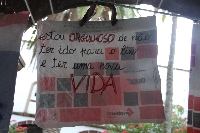 Estou ORGULHOSO de não
ter ido para o
e ter uma nova
VIDA